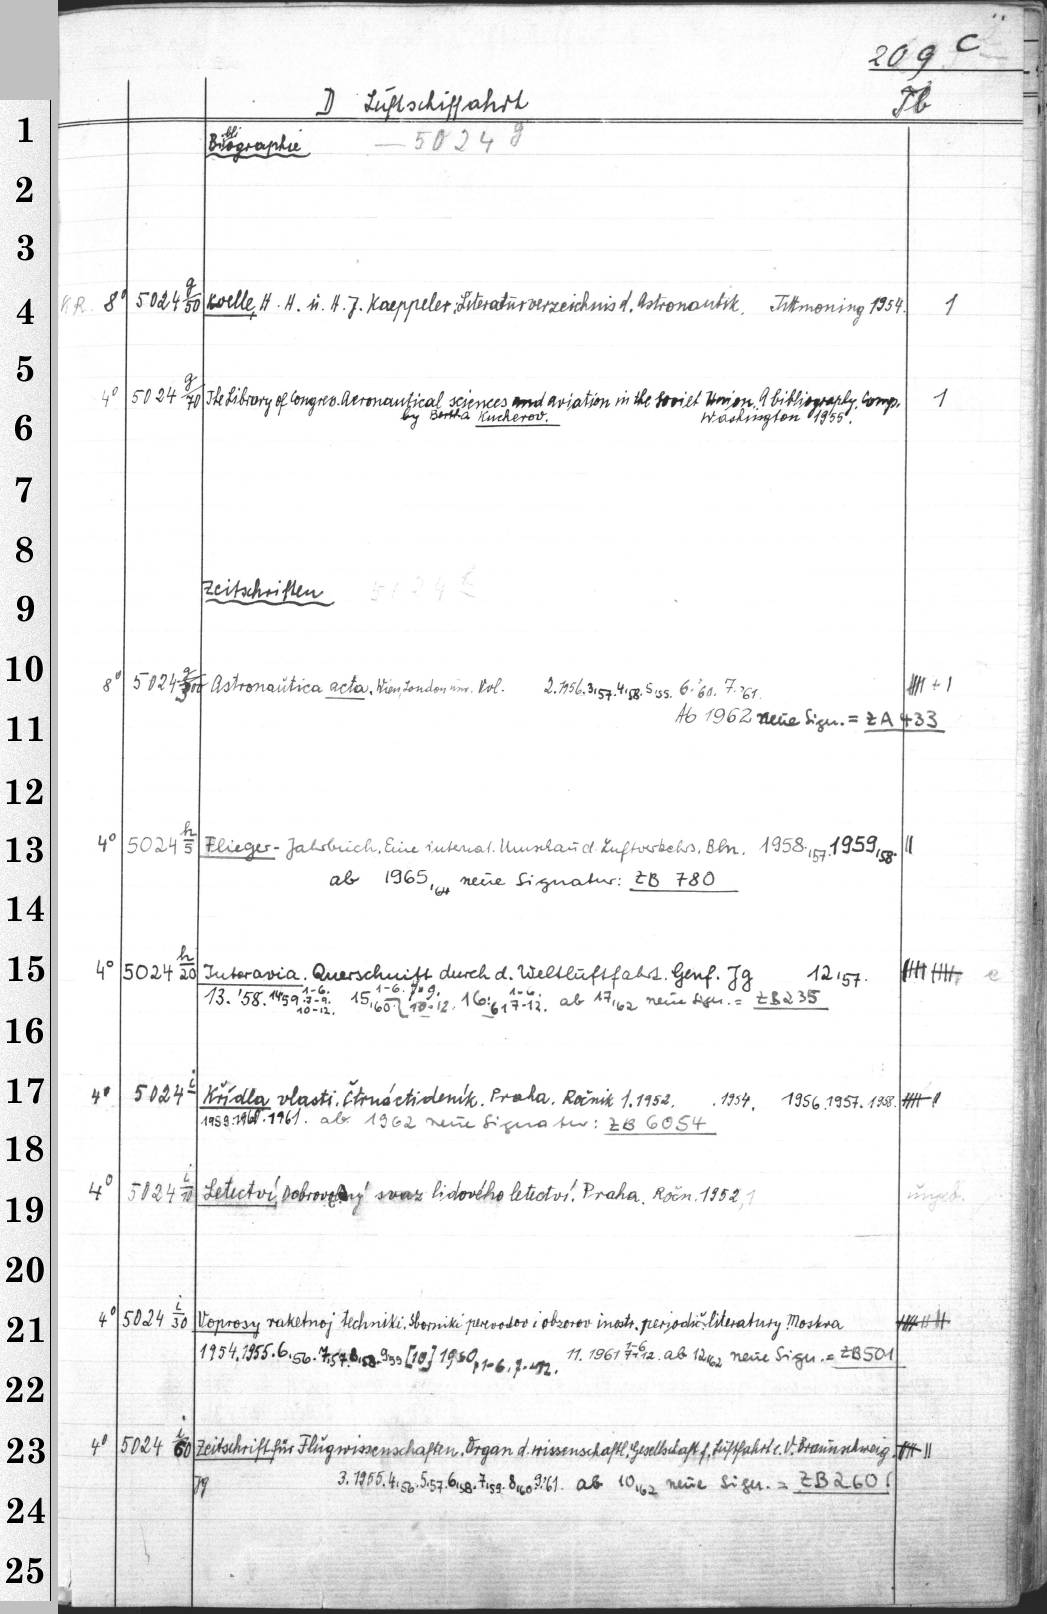 209 c
D Luftschiffahrt Tb
Bibliographie — 5024 g
K.R. 8° 5024 g/50 Koelle, H. H. u. H. J. Kaeppeler, Literaturverzeichnis d. Astronautik. Tittmoning 1954. 1
4° 5024 g/70 The Library of Congres. Aeronautical sciences and aviation in the soviet Union. A bibliography. Comp.
by Bertha Kucherov. Washington 1955. 1
Zeitschriften 5024
8° 5024 g/300 Astronautica acta. Wien, London usw. Vol. 2.1956. 3,57. 4,58. 5,55. 6.'60. 7.'61. + 1
Ab 1962 neue Sign. = ZA 433
4° 5024 h/5 Flieger-Jahrbuch. Eine internat. Umschau d. Luftverkehrs. Bln. 1958,57. 1959,58. II
ab 1965,64 neue Signatur: ZB 780
4° 5024 h/20 Interavia. Querschnitt durch d. Weltluftfahrt. Genf. Jg 12,57.
13.'58. 14,59 1-6. 7-9. 10-12. 15,60 1-6. 7-9. 10-12. 16,61 1-6. 7-12. ab 17,62 neue Sign. = ZB235
4° 5024 i Křídla vlasti. Čtrnáctideník. Praha. Ročník 1.1952. .1954. 1956. 1957. 1958.
1959. 1960. 1961. ab 1962 neue Signatur: ZB 6054
4° 5024 i/10 Letectví, Dobrovolný svaz lidového letectví. Praha. Ročn. 1952,1 ungeb.
4° 5024 i/30 Voprosy raketnoj techniki. Sborniki perevodov i obzorov inostr. periodič. literatury. Moskva
1954. 1955. 6,56. 7,57. 8,58. 9,59 [10] 1960, 1-6, 7-12. 11. 1961 1-6 7-12. ab 12,62 neue Sign. = ZB501
4° 5024 i/60 Zeitschrift für Flugwissenschaften. Organ d. wissenschaftl. Gesellschaft f. Luftfahrt e. V. Braunschweig. II
Jg 3. 1955. 4,56. 5,57. 6,58. 7,59. 8,60 9.'61. ab 10,62 neue Sign. = ZB260
1
2
3
4
5
6
7
8
9
10
11
12
13
14
15
16
17
18
19
20
21
22
23
24
25